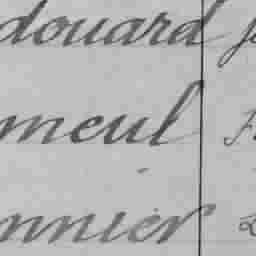 douard
meul
nnier